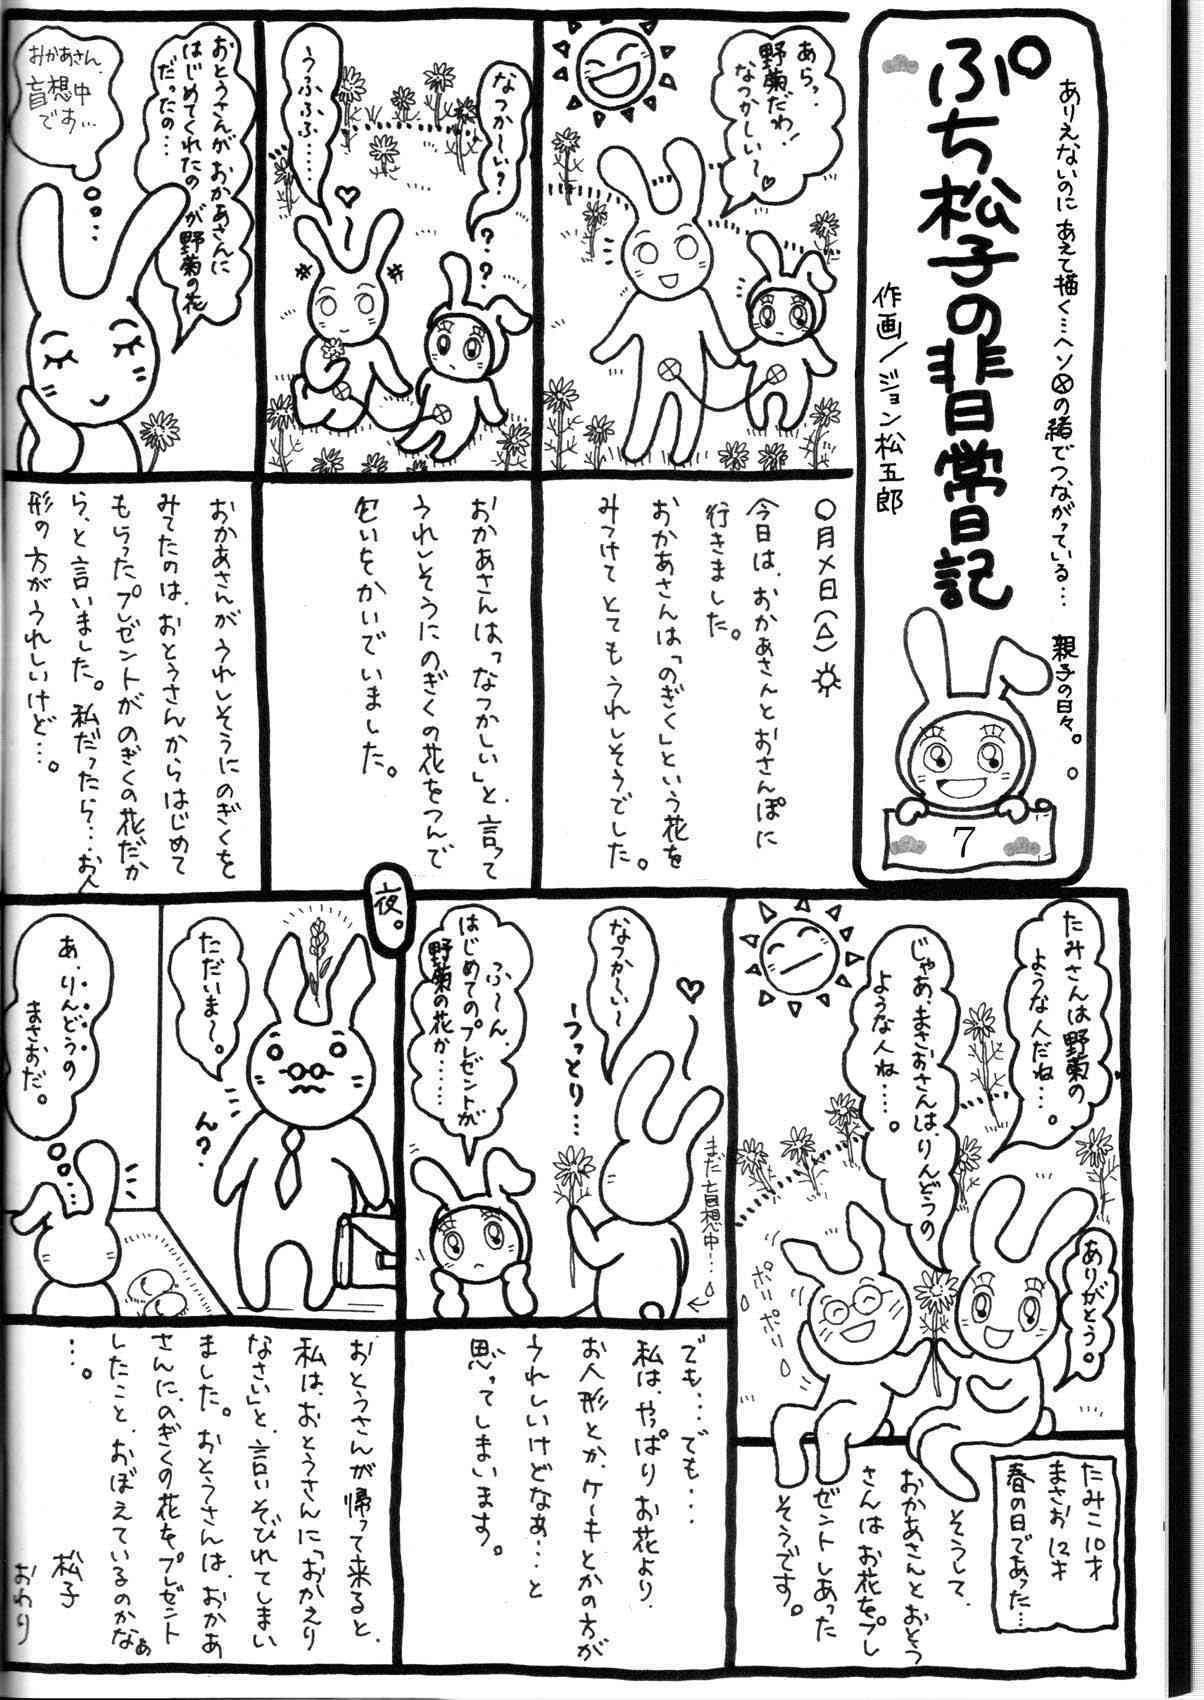 ありえないのに あえて描く…ヘソⓧの緒でつながっている…
親子の日々。
ぷち松子の非日常日記
作画/ジョン松五郎
7
あらっ、
野菊だわ!
なつかしい〜♡
〇月〤日(△)☼
今日は、おかあさんとおさんぽに
行きました。
おかあさんは「のぎく」という花を
みつけて とても うれしそうでした。
なつか〜い?
???
うふふふ……
おかあさんは「なつかしい」と、言って
うれしそうにのぎくの花をつんで
匂いをかいでいました。
おとうさんが おかあさんに
はじめてくれたのが 野菊の花
だったの…
おかあさん、
盲想中
です…
おかあさんが うれしそうに のぎくを
みてたのは、おとうさんからはじめて
もらったプレゼントが のぎくの花だか
ら、と言いました。私だったら…お人
形の方がうれしいけど…。
たみさんは 野菊の
ような人だね…。
じゃあ、まさおさんは、りんどうの
ような人ね……。
ありがとう。
ポリポリ
ポリ
たみこ 10才
まさお 12才
春の日であった…
そうして、
おかあさんとおとう
さんはお花をプレ
ゼントしあった
そうです。
なつか〜い〜
うっとり…
まだ盲想中…
ふ〜ん、
はじめてのプレゼントが
野菊の花か……
でも…でも…
私は、やっぱりお花より、
お人形とか、ケーキとかの方が
うれしいけどなあ…と
思ってしまいます。
夜。
ただいま〜。
ん?
あ、りんどうの
まさおだ。
おとうさんが帰って来ると、
私は、おとうさんに「おかえり
なさい」と、言いそびれてしまい
ました。おとうさんは、おかあ
さんに、のぎくの花をプレゼント
したこと、おぼえているのかなぁ
…。
松子
おわり